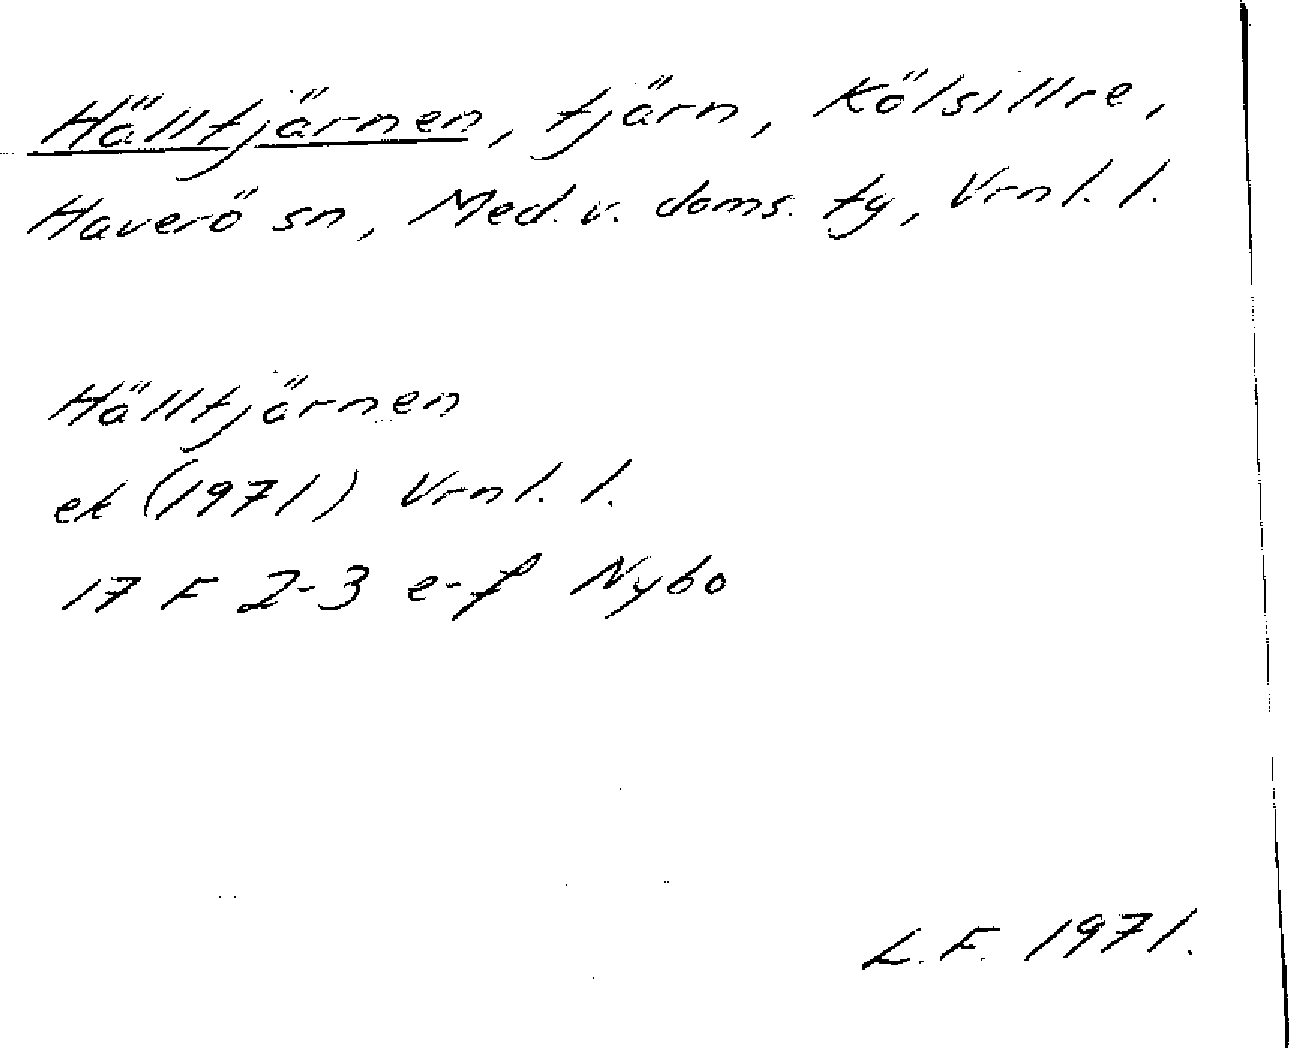 Hälltjärnen, tjärn, Kölsillre,
Haverö sn, Med. v. doms. tg, Vrnl. l.
Hälltjärnen
ek (1971) Vrnl. l.
17 F 2-3 e-f Nybo
L. F. 1971.